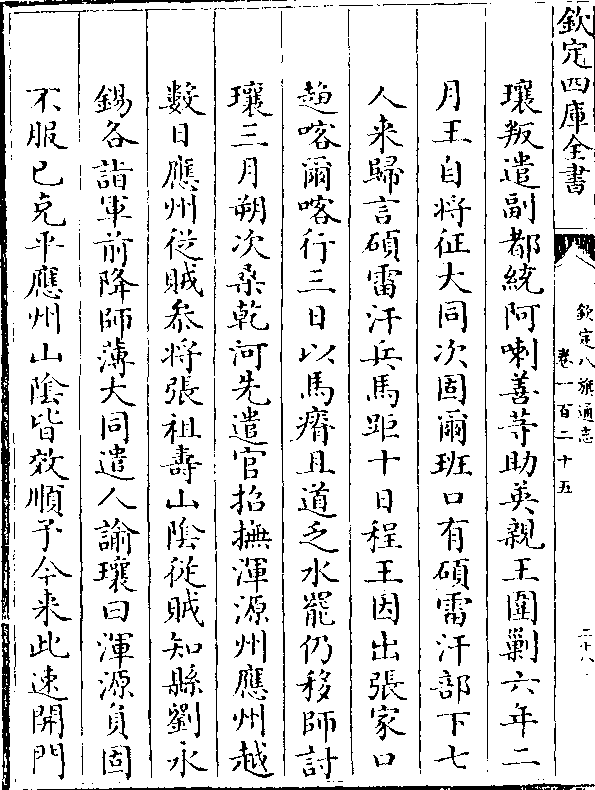 欽定四庫全書
欽定八旗通志
卷一百二十五
二十八
瓌叛遣副都統阿喇善等助英親王圍剿六年二
月王自將征大同次固爾班口有碩雷汗部下七
人來歸言碩雷汗兵馬距十日程王因出張家口
趨喀爾喀行三日以馬瘠且道乏水罷仍移師討
瓌三月朔次桑乾河先遣官招撫渾源州應州越
數日應州從賊叅將張祖壽山隂從賊知縣劉永
錫各詣軍前降師薄大同遣人諭瓌曰渾源負固
不服已克平應州山隂皆效順予今來此速開門